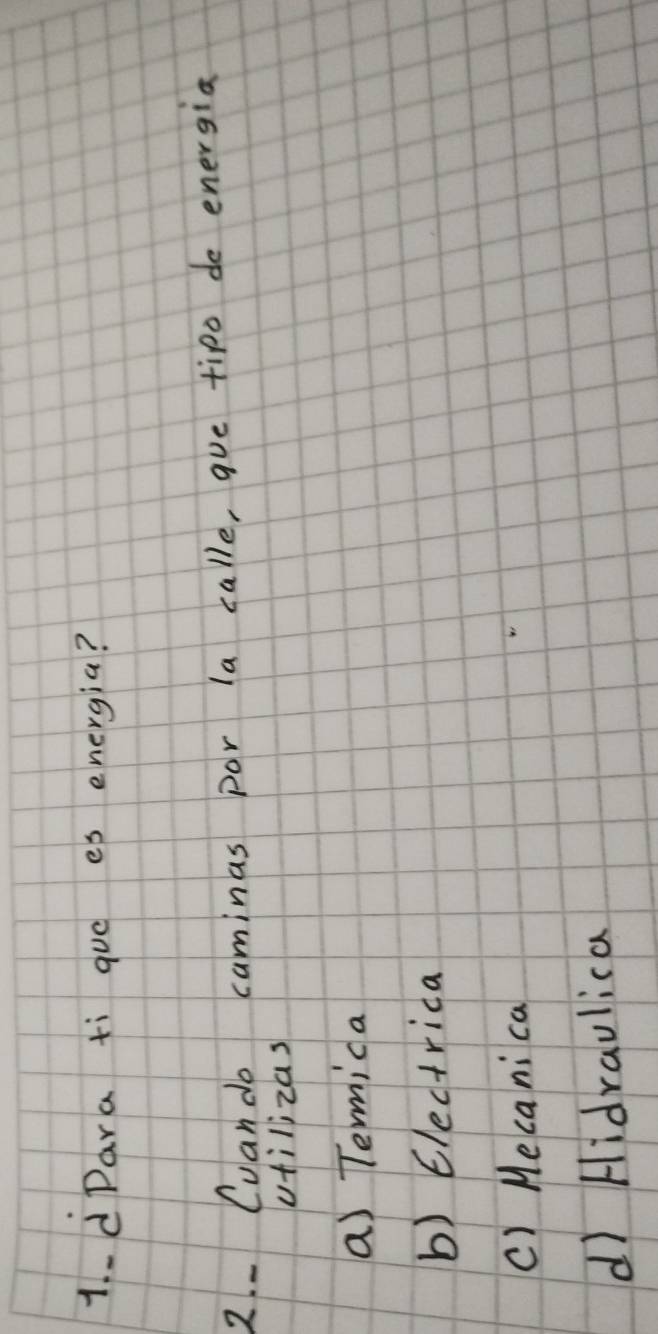 1.- ¿Para ti que es energia?
2.- Cuando caminas por la calle, que tipo de energia
utilizas
a) Termica
b) Electrica
c) Mecanica
d) Hidraulica